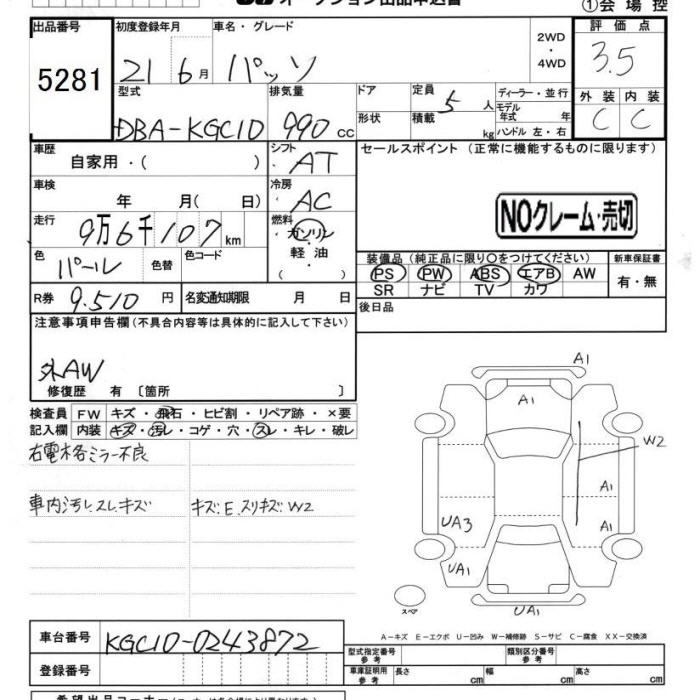 オークション出品申込書
①会場控
出品番号 初度登録年月 車名・グレード 2WD ・ 4WD 評価点
5281 21 6月 パッソ 3.5
型式 排気量 ドア 定員 5人 ディーラー・並行 外装 内装
DBA-KGC10 990cc 形状 積載 kg モデル年式 年 C C
ハンドル 左・右
車歴 自家用・( ) シフト AT セールスポイント (正常に機能するものに限ります)
車検 年 月( 日) 冷房 AC
NOクレーム・売切
走行 9万6千107km 燃料 ガソリン・軽油・( )
色 パール 色替 色コード
装備品(純正品に限り○をつけてください) 新車保証書
PS PW ABS エアB AW 有・無
SR ナビ TV カワ
R券 9.510円 名変通知期限 月 日 後日品
注意事項申告欄(不具合内容等は具体的に記入して下さい)
外AW
修復歴 有〔箇所 〕
検査員 FW キズ・飛石・ヒビ割・リペア跡・×要
記入欄 内装 キズ・汚レ・コゲ・穴・スレ・キレ・破レ
右電格ミラー不良
車内汚レスレキズ キズ.E.スリキズ W2
A1
A1
W2
A1
UA3 A1
UA1
UA1
スペア
A-キズ E-エクボ U-凹み W-補修跡 S-サビ C-腐食 XX-交換済
車台番号 KGC10-0243872
型式指定番号 参考 類別区分番号 参考
登録番号 車庫証明用 参考 長さ cm 幅 cm 高さ cm
希望出品コーナー